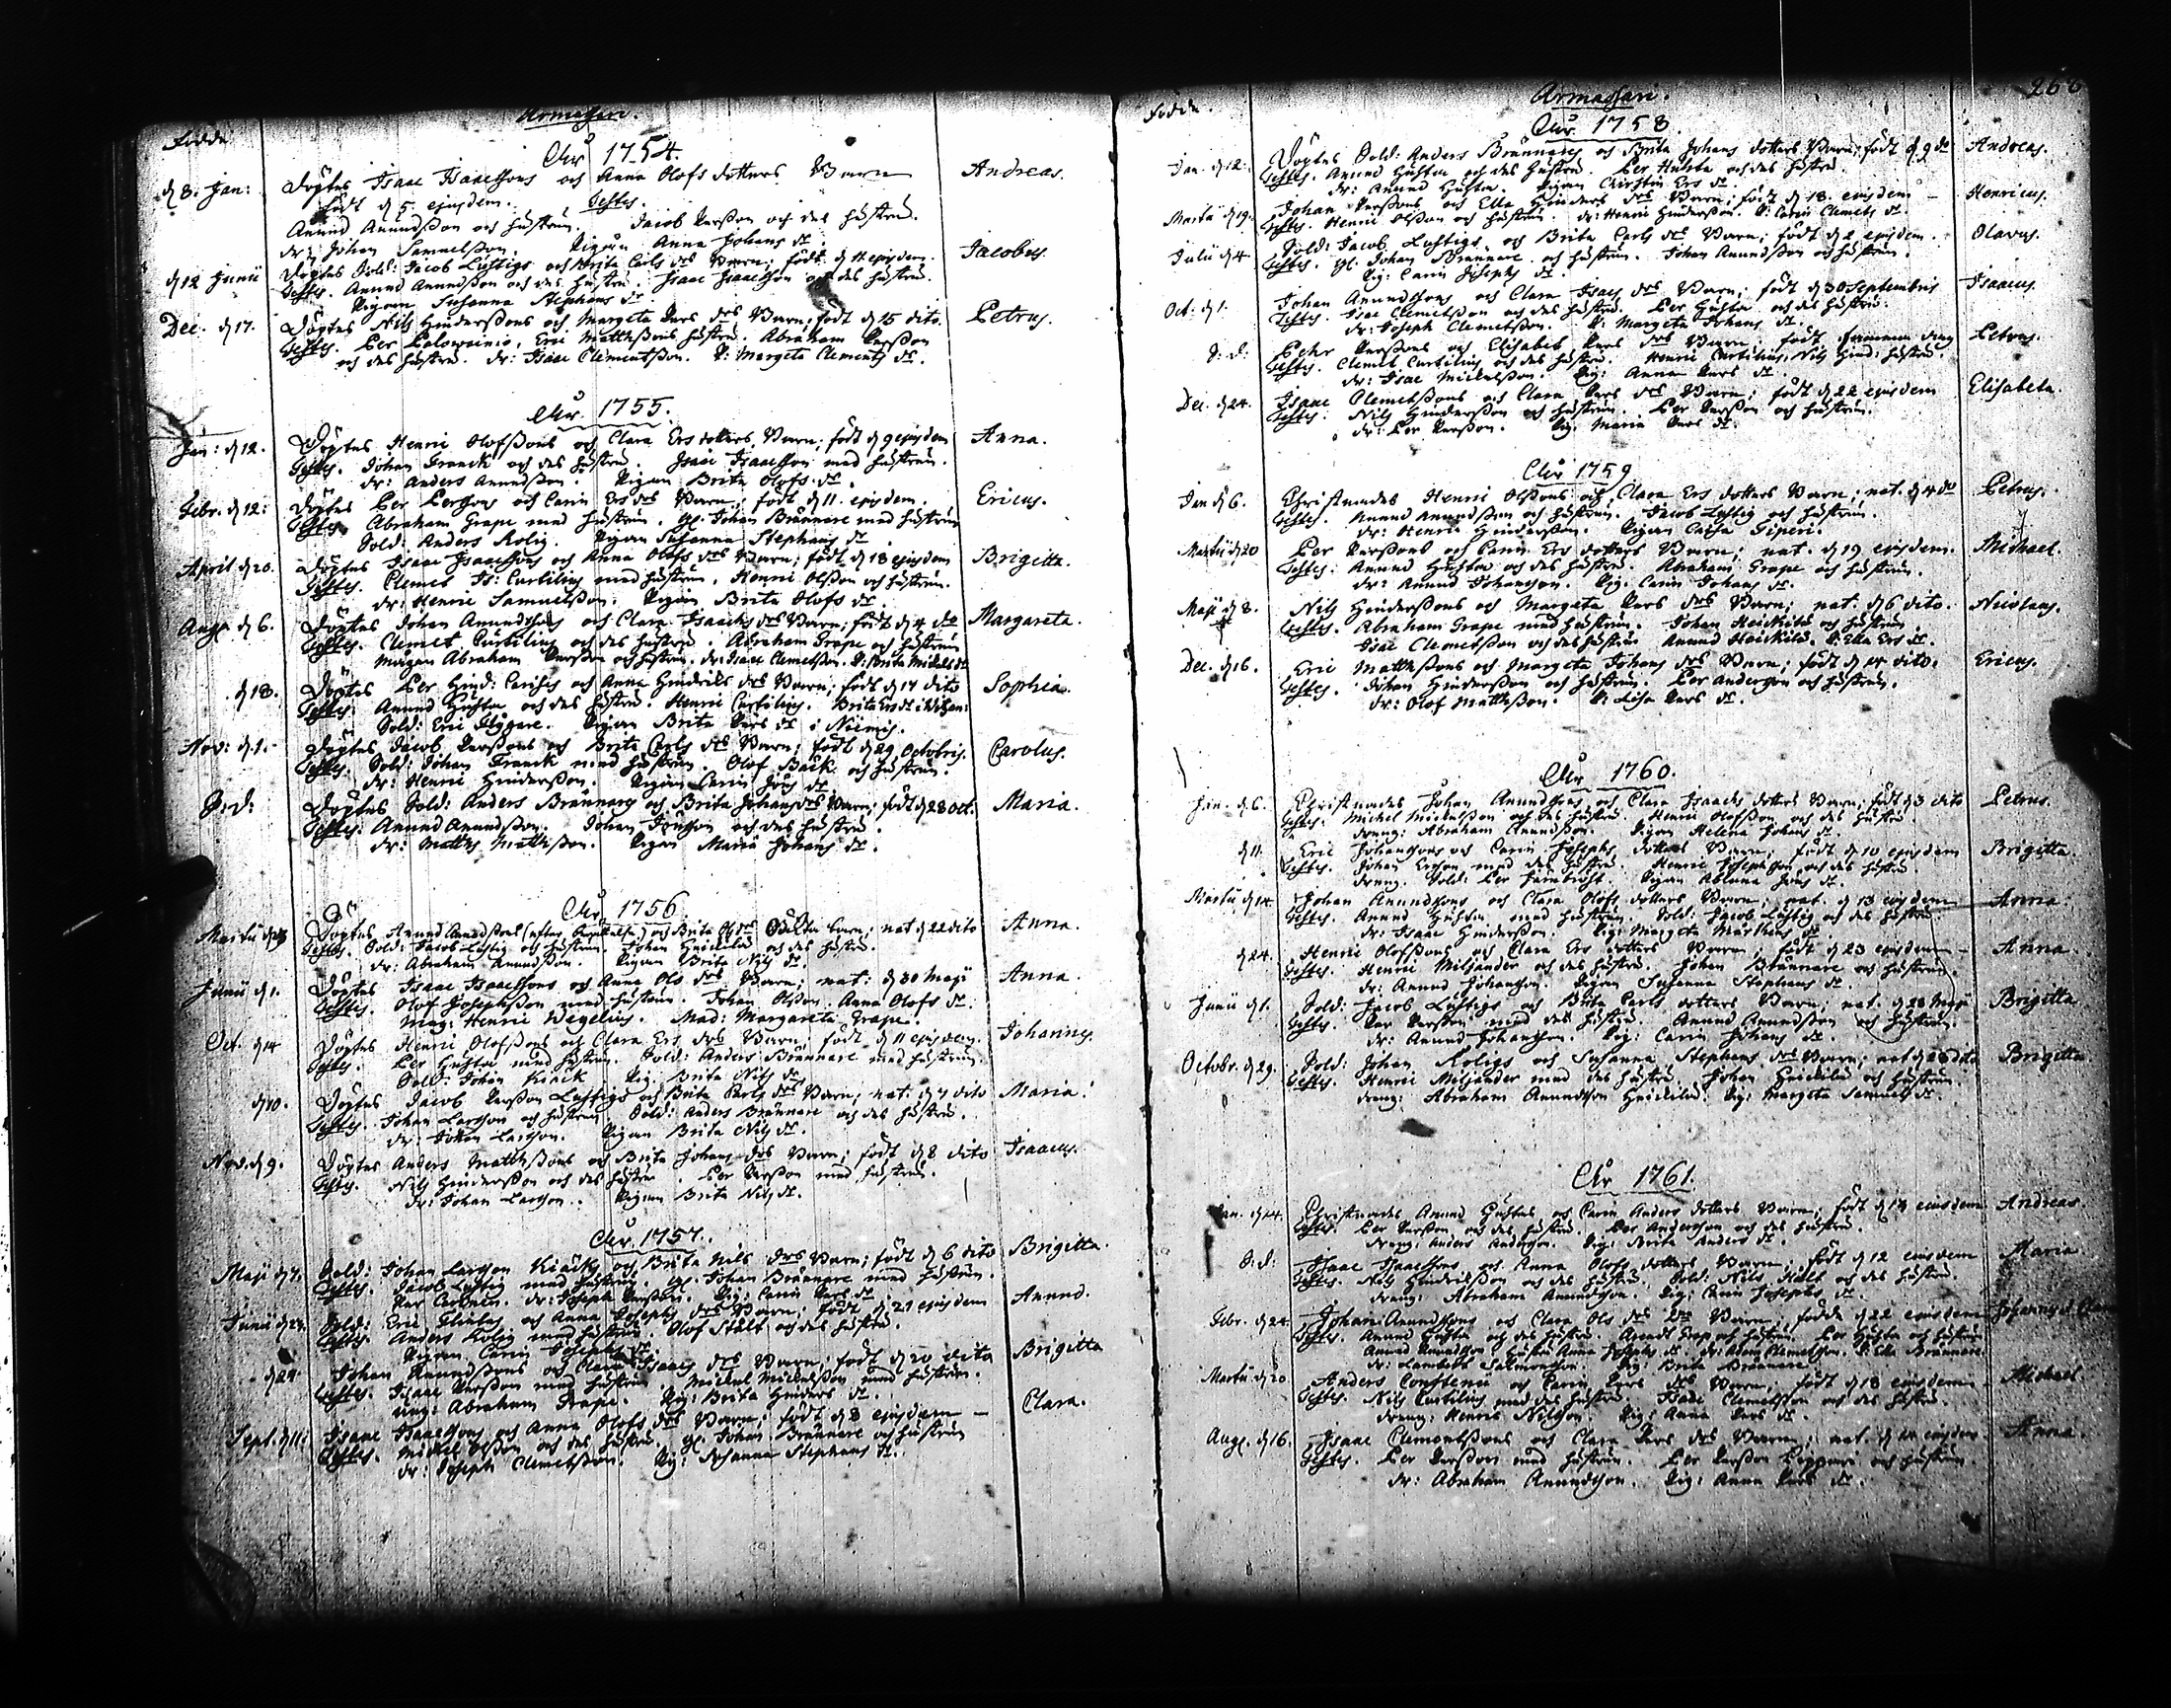 Födde
Armassari.
Åhr 1754.
d 8. Jan: Döptes Isaac Isaacssons och Anna Olofs dotters Barn Andreas.
födt d 5. ejusdem. Testes.
Anund Anundsson och hustru. Jacob Persson och des hustru.
dr: Johan Samuelsson. Pigan Anna Johans dr.
d 12 Junii Döptes Sold: Jacob Lustigs och Brita Carls drs Barn; födt d 11 ejusdem. Jacobus.
Testes. Anund Anundsson och des hustru. Isaac Isaacsson och des hustru.
Pigan Susanna Stephans dr.
Dec. d 17. Döptes Nils Hinderssons och Margeta Pers drs Barn; födt d 15 dito. Petrus.
Testes. Per Palowainio, Eric Matthssons hustru. Abraham Persson
och des hustru. dr: Isaac Clementsson. P: Margeta Clements dr.
Åhr 1755.
Jan: d 12. Döptes Henric Olofssons och Clara Ers dotters Barn; födt d 9 ejusdem Anna.
Testes. Johan Franck och des hustru. Isaac Isaacsson med hustrun.
dr: Anders Anundsson. Pigan Brita Olofs dr.
Febr. d 12: Döptes Per Perssons och Carin Ers drs Barn; födt d 11. ejusdem. Ericus.
Testes. Abraham Grape med hustrun. gl. Johan Brännare med hustrun
Sold: Anders Rolig. Pigan Susanna Stephans dr.
April d 20. Döptes Isaac Isaacssons och Anna Olofs drs Barn; födt d 18 ejusdem Brigitta.
Testes. Clemet Is: Curtilius med hustrun. Henric Olsson och hustrun.
dr: Henric Samuelsson. Pigan Brita Olofs dr.
Aug. d 6. Döptes Johan Anundssons och Clara Isaachs drs Barn; födt d 4 do Margareta.
Testes. Clemet Curtilius och des hustru. Abraham Grape och hustrun.
Abraham Persson och hustrun. dr: Isaac Clemetsson. P: Brita Mickels dr
d 18. Döptes Per Hind: och Anna Hindriks drs Barn; födt d 17 dito Sophia.
Testes. Anund Huhta och des hustru. Henric Curtilius.
Sold: Eric Flygare. Pigan Brita Pers dr i Niemis.
Nov: d 1. Döptes Jacob Perssons och Brita Carls drs Barn; födt d 29 Octobris. Carolus.
Testes. Sold: Johan Franck med hustrun. Olof Bäck och hustrun.
dr: Henric Hindersson. Pigan Carin dr
D: d: Döptes Sold: Anders Brännares och Brita Johans drs Barn; födt d 28 oct. Maria.
Testes. Anund Anundsson. Johan och des hustru.
dr: Matths Matthsson. Pigan Maria Johans dr.
Åhr 1756
Martii Döptes Anund Anundssons och Brita Barn; nat d 22 dito Anna.
Testes. Sold: Jacob Lustig och hustrun. Johan Heickilä och des hustru.
dr: Abraham Anundsson. Pigan Brita Nils dr.
Junii d 1. Döptes Isaac Isaacssons och Anna Ols drs Barn; nat: d 30 Maji Anna.
Testes. Olof Josephsson med hustrun. Johan Olsson. Anna Olofs dr.
Mag: Henric Wegelius. Mad: Margareta Grape.
Oct. d 14 Döptes Henric Olofssons och Clara Ers drs Barn; födt d 11 ejusdem. Johannes.
Testes. Per Huhta med hustrun. Sold: Anders Brännare med hustrun.
Sold: Johan Kiäck Pig: Brita Nils dr.
d 10. Döptes Jacob Persson Lustigs och Brita Carls drs Barn; nat. d 7 dito Maria.
Testes. Johan Larsson och hustrun. Sold: Anders Brännare och des hustru.
dr: Johan Larsson. Pigan Brita Nils dr.
Nov. d 9. Döptes Anders Matthssons och Brita Johans drs Barn; födt d 8 dito Isaacus.
Testes. Nils Hindersson och des hustru. Per Persson med hustrun.
dr: Johan Larsson. Pigan Brita Nils dr.
Åhr 1757.
Maji d 7. Sold: Johan Larsson Kiäcks och Brita Nils drs Barn; födt d 6 dito Brigitta.
Testes. Jacob Lustig med hustrun. gl. Johan Brännare med hustrun.
dr: Joseph Persson. Pig: Carin Pers dr.
Junii Sold: Eric och Anna Josephs drs Barn; födt d 21 ejusdem Anund.
Testes. Anders Rolig med hustrun. Olof Stålt och des hustru.
Pigan Carin Josephs dr.
d 24. Johan Anundssons och Clara Isaacs drs Barn; födt d 20 dito Brigitta
Testes. Isaac Persson med hustrun Mickel Mickelsson med hustrun.
ung: Abraham Grape. Pig: Brita Hinders dr.
Sept. d 11. Isaac Isaacssons och Anna Olofs drs Barn; födt d 8 ejusdem Clara.
Testes. Mickel Olsson och des hustru. gl. Johan Brännare och hustrun
dr: Joseph Clemetsson. Pig: Susanna Stephans dr.
268
Födde.
Armassari.
Åhr 1758.
Jan. d 12. Döptes Sold: Anders Brännares och Brita Johans dotters Barn; födt d 9 do Andreas.
Testes. Anund Huhta och des hustru. Per Huhta och des hustru.
dr: Anund Huhta. Pigan Christin Ers dr.
Martii d 19. Johan Perssons och Ella Hinders drs Barn; födt d 18. ejusdem Henricus.
Testes. Henric Olsson och hustrun. dr: Henric Hindersson. P: Carin Clemets dr.
Julii d 4 Sold: Jacob Lustigs och Brita Carls drs Barn; födt d 2 ejusdem. Olavus.
Testes. gl. Johan Brännare och hustrun. Johan Anundsson och hustrun.
Pig: Carin Josephs dr.
Oct: d 1. Johan Anundssons och Clara Isacs drs Barn; födt d 30 Septembris Isaacus.
Testes. Isac Clemetsson och des hustru. Per Huhta och des hustru.
dr: Joseph Clemetsson. P: Margeta Johans dr.
D: d: Pehr Perssons och Elisabet Pers drs Barn; födt samma dag Petrus.
Testes. Clemet Curtilius och des hustru. Henric Curtilius, Nils Hind: hustru.
dr: Isac Mickelsson. Pig: Anna Pers dr.
Dec. d 24. Isaac Clemetssons och Clara Pers drs Barn; födt d 22 ejusdem Elisabeta.
Testes. Nils Hindersson och hustrun. Per Persson och hustrun.
dr: Per Persson. Pig: Maria Pers dr.
Åhr 1759
Jan d 6. Christnades Henric Olssons och Clara Ers dotters Barn; nat. d 4 do Petrus.
Testes. Anund Anundsson och hustrun. Jacob Lustig och hustrun.
dr: Henric Hindersson. Pigan Caisa
Martii d 20 Per Perssons och Carin Ers dotters Barn; nat. d 19 ejusdem. Michael.
Testes: Anund Huhta och des hustru. Abraham Grape och hustrun.
dr: Anund Johansson. Pig: Carin Johans dr.
Maji d 8. Nils Hinderssons och Margeta Pers drs Barn; nat. d 6 dito. Nicolaus.
Testes. Abraham Grape med hustrun. Johan Heickilä och hustrun.
Isac Clemetsson och des hustru Anund Heickilä. P: Ella Ers dr.
Dec. d 16. Eric Matthssons och Margeta Johans drs Barn; födt d 14 dito. Ericus.
Testes. Johan Hindersson och hustrun. Per Andersson och hustrun.
dr: Olof Matthsson. P: Lisa Pers dr.
Åhr 1760.
Jan. d 6. Christnades Johan Anundssons och Clara Isaachs dotters Barn; födt d 3 dito Petrus.
Testes. Michel Mickelsson och des hustru. Henric Olofsson och des hustru.
dreng: Abraham Anundsson. Pigan Helena Johans dr.
d 11. Eric Johanssons och Carin Josephs dotters Barn; födt d 10 ejusdem Brigitta.
Testes. Johan Ersson med des hustru. Henric Josephsson och des hustru.
dreng. Sold: Per Pigan dr.
Martii d 14. Johan Anundssons och Clara Olofs dotters Barn; nat. d 13 ejusdem Anna.
Testes. Anund Huhta med hustrun. Sold: Jacob Lustig och des hustru.
dr: Isaac Hindersson. Pig: Margeta Matthias dr.
d 24. Henric Olofssons och Clara Ers dotters Barn; födt d 23 ejusdem Anna
Testes. Henric Miljander och des hustru. Johan Brännare och hustrun.
dr: Anund Johansson. Pigan Susanna Stephans dr.
Junii d 1. Sold: Jacob Lustigs och Brita Carls dotters Barn; nat. d 28 Maji Brigitta
Testes. Per Persson med des hustru. Anund Anundsson och hustrun.
dr: Anund Johansson. Pig: Carin Johans dr.
Octobr. d 29. Sold: Johan Roligs och Susanna Stephans drs Barn; nat d 28 dito Brigitta
Testes. Henric Miljander med des hustru. Johan Heickilä och hustrun.
dreng: Abraham Anundsson Heickilä. Pig: Margeta Samuels dr.
Åhr 1761.
Jan. d 14. Christnades Anund Huhtas och Carin Anders dotters Barn; födt d 13 ejusdem Andreas.
Testes. Per Persson och des hustru. Per Andersson och des hustru.
dreng: Anders Andersson. Pig: Brita Anders dr.
D: d: Isaac Isaacssons och Anna Olofs dotters Barn; födt d 12 ejusdem Maria
Testes. Nils Hindriksson och des hustru. Sold: Nils Hult och des hustru.
dreng: Abraham Anundsson. Pig: Carin Josephs dr.
Febr. d 24 Johan Anundssons och Clara Ols drs Barn, födde d 22 ejusdem Johannes
Testes. Anund Huhta och des hustru. Arendt Grap och hustrun. Per Huhta och hustrun
Anund Anundsson Anna Josephs dr. dr: Adam Clemetsson. P: Ella Brännare.
dr: Lambert Salomonsson. Pig: Brita Brännare.
Martii d 20 Anders Constenii och Carin Lars drs Barn; födt d 18 ejusdem Michael
Testes. Nils Curtilius med des hustru. Isaac Clemetsson och des hustru.
dreng: Henric Nilsson. Pig: Anna Pers dr.
Aug. d 16. Isaac Clementssons och Clara Pers drs Barn; nat. d 14 ejusdem Anna.
Testes. Per Persson med hustrun. Per Persson och hustrun.
dr: Abraham Anundsson. Pig: Anna Pers dr.